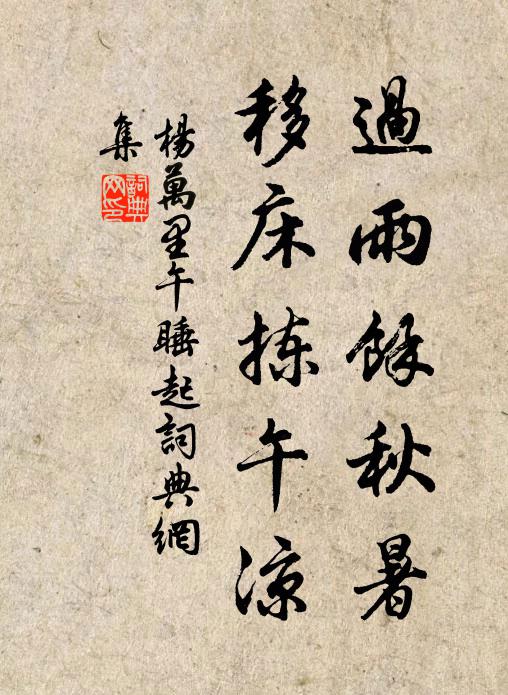 過雨餘秋暑
移床揀午涼
楊萬里午睡起詞典網
集
詞典
网印